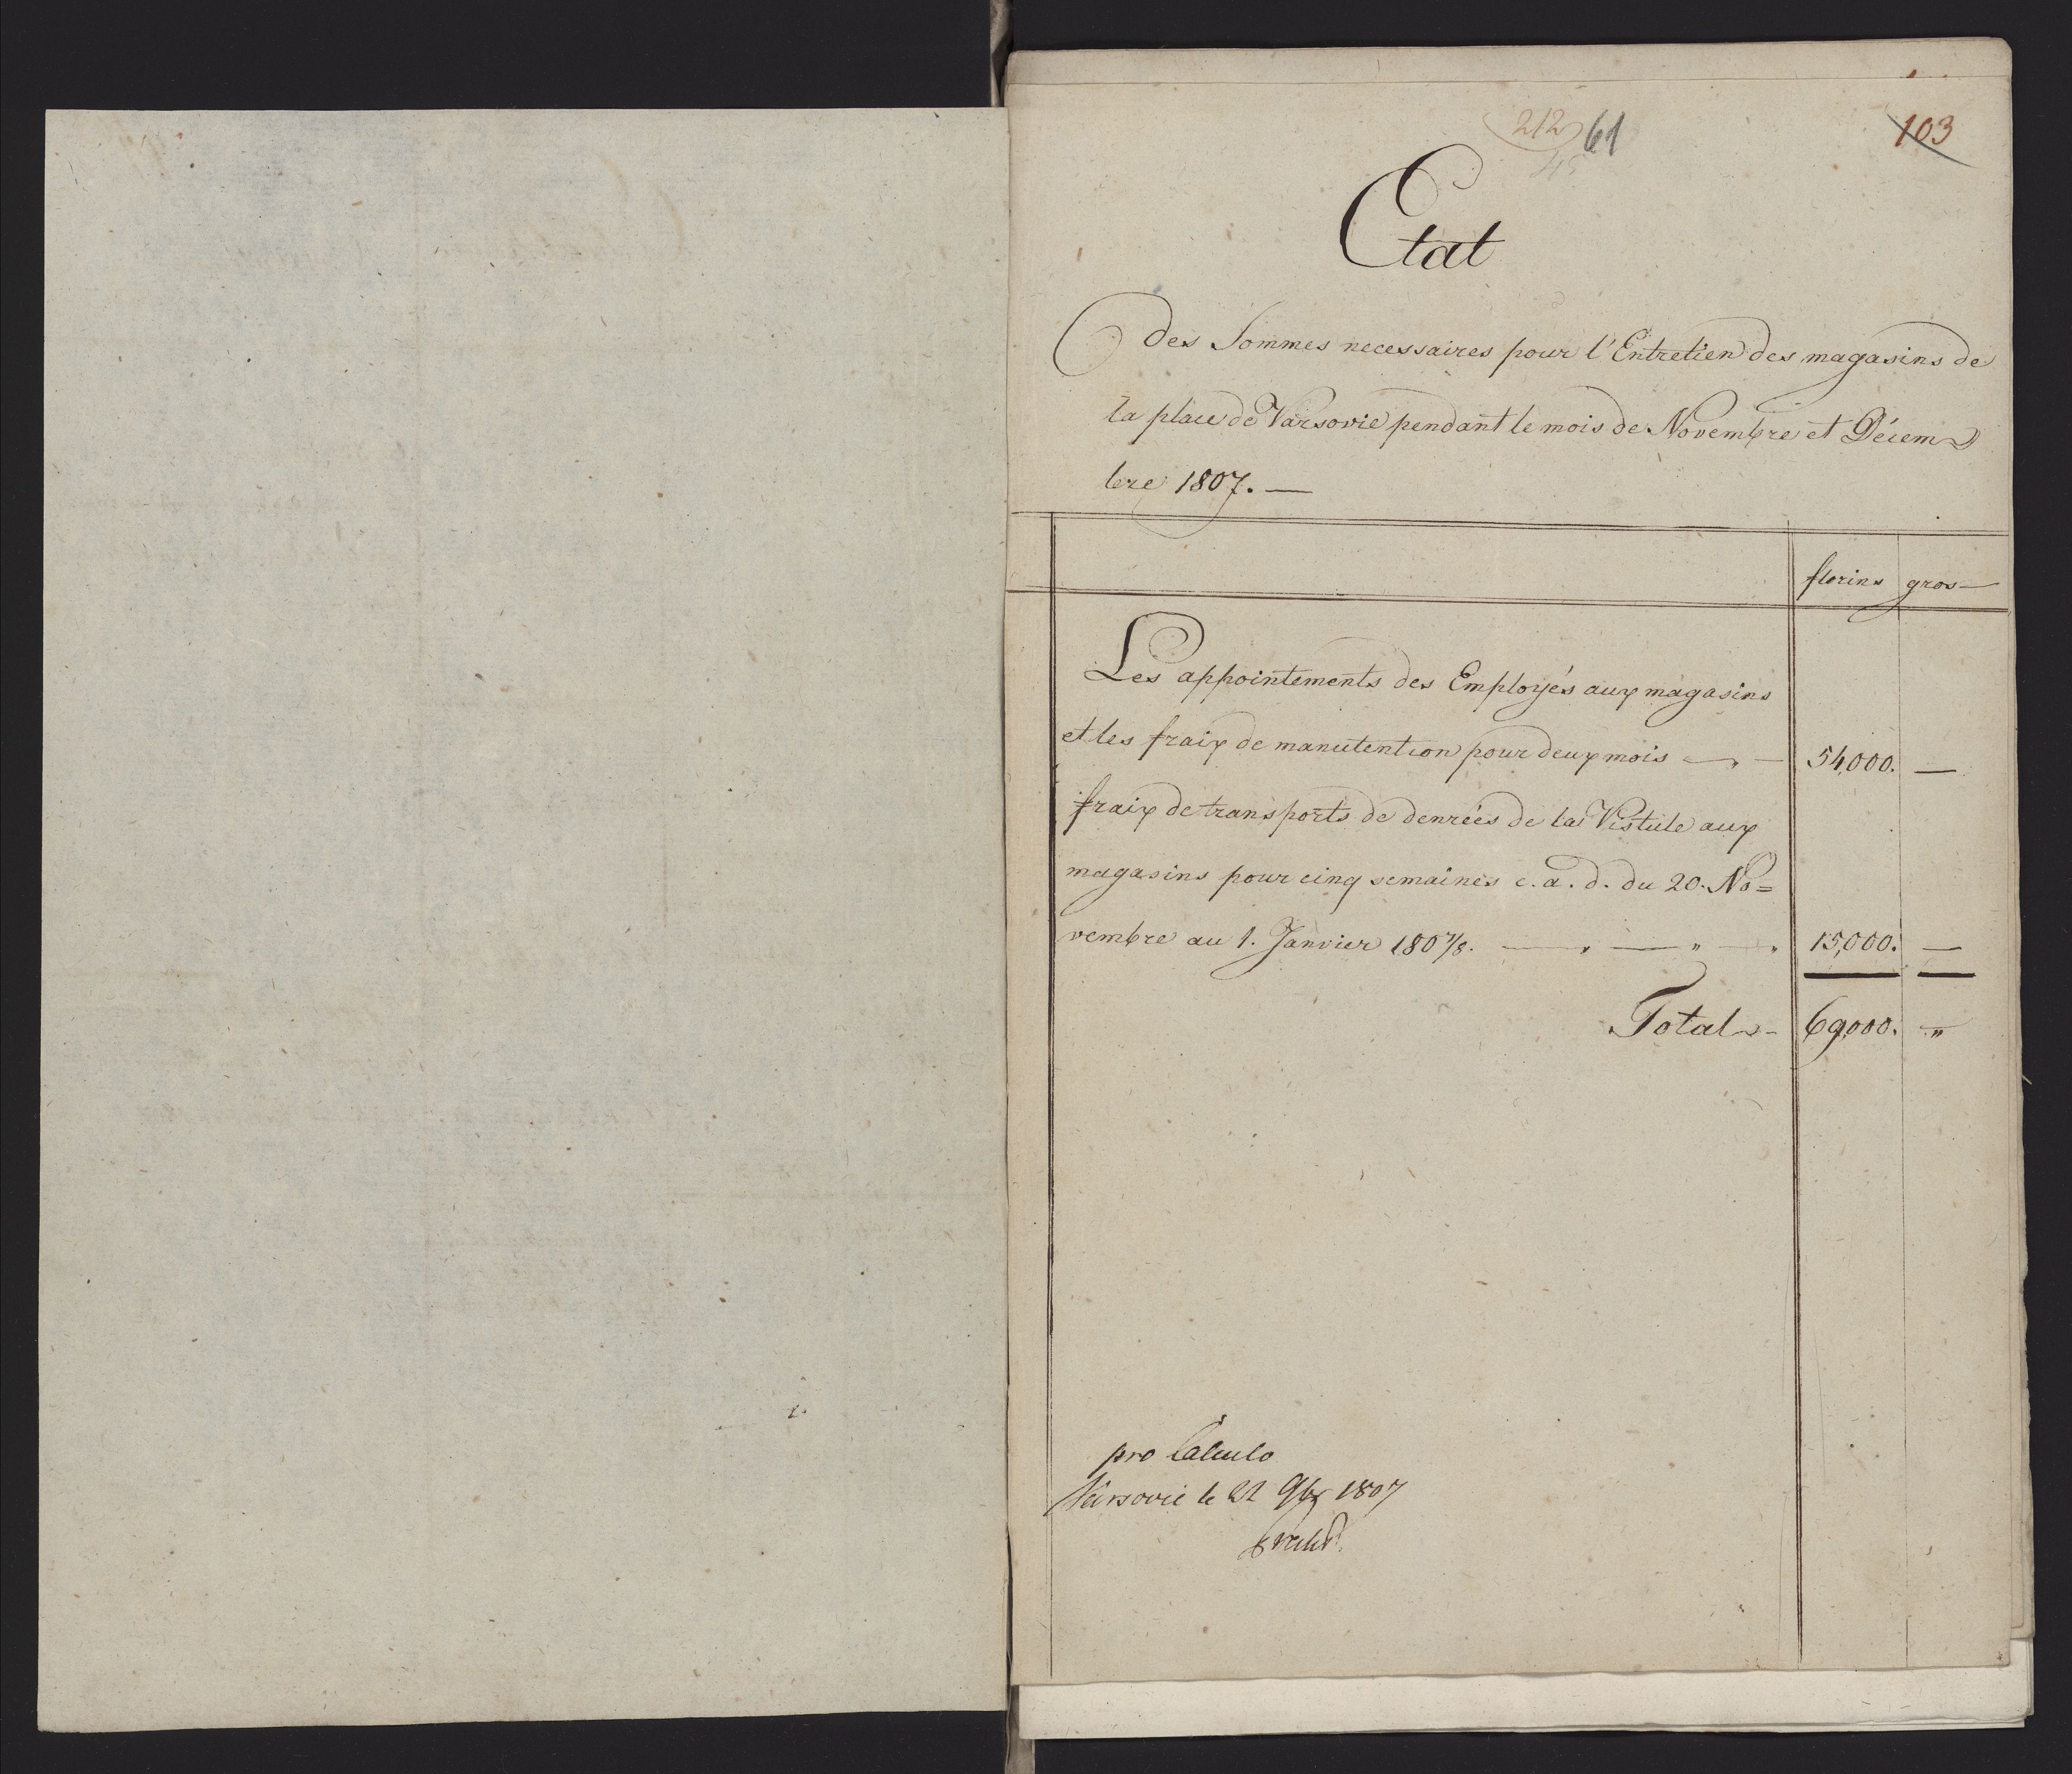 212 61
103
45
Etat
des Sommes necessaires pour l'Entretien des magasins de
la place de Varsovie pendant le mois de Novembre et Décem
bre 1807. —
florins gros —
Les appointements des Employés aux magasins
et les fraix de manutention pour deux mois — " — 54,000. —
fraix de transports de denrées de la Vistule aux
magasins pour cinq semaines c. a. d. du 20. No=
vembre au 1. Janvier 1807/8. — " — " — " 15,000. —
Total — 69,000. "
pro Calculo
Varsovie le 22 9br 1807